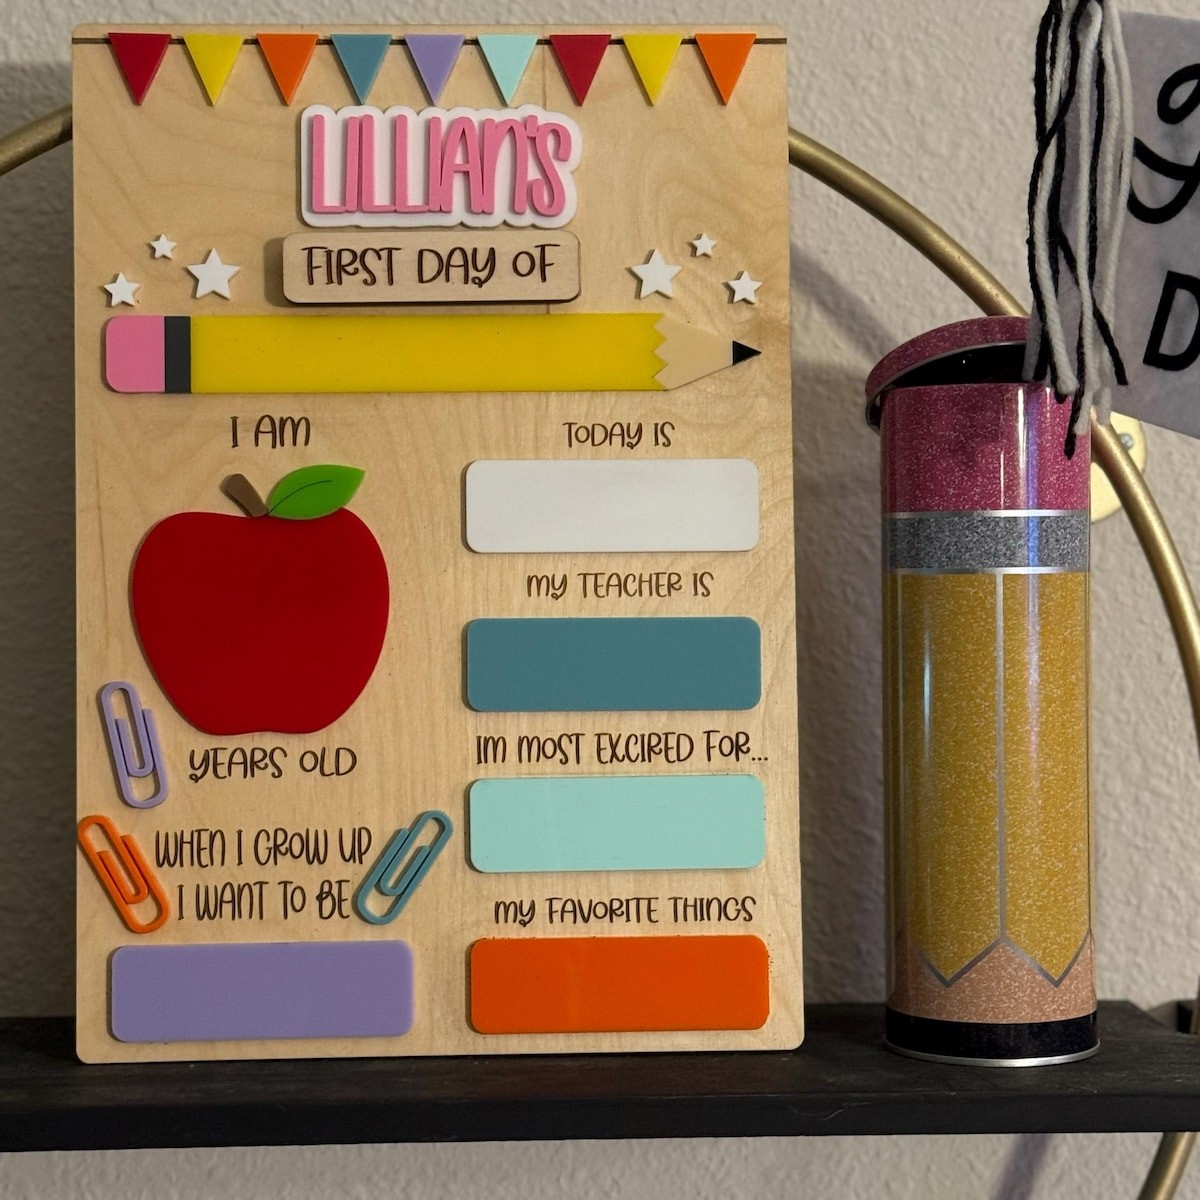 LILLIAN'S
FIRST DAY OF
I AM
TODAY IS
MY TEACHER IS
YEARS OLD
IM MOST EXCIRED FOR...
WHEN I GROW UP
I WANT TO BE
MY FAVORITE THINGS